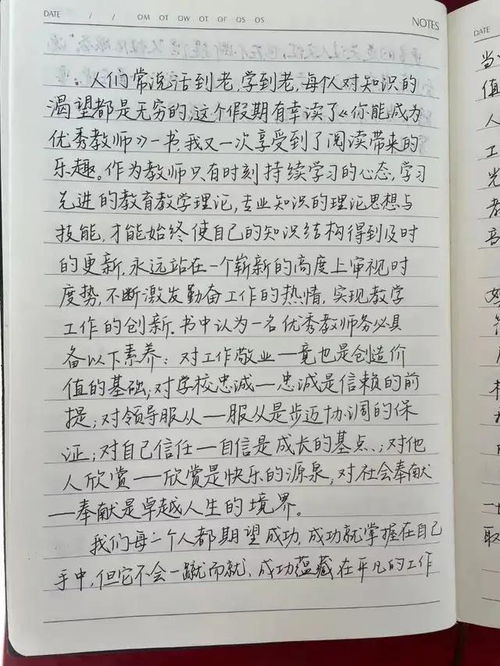 DATE / / OM OT OW OT OF OS OS NOTES
DATE
人们常说活到老,学到老,每个人对知识的
渴望都是无穷的,这个假期有幸读了《你能成为
优秀教师》一书,我又一次享受到了阅读带来的
乐趣。作为教师只有时刻持续学习的心态,学习
先进的教育教学理论,专业知识的理论思想与
技能,才能始终使自己的知识结构得到及时
的更新,永远站在一个崭新的高度上审视时
度势,不断激发勤奋工作的热情,实现教学
工作的创新。书中认为一名优秀教师务必具
备以下素养:对工作敬业——竟也是创造价
值的基础,对学校忠诚——忠诚是信赖的前
提;对领导服从——服从是步迈协调的保
证;对自己信任——自信是成长的基点、;对他
人欣赏——欣赏是快乐的源泉,对社会奉献—
—奉献是卓越人生的境界。
我们每一个人都期望成功,成功就掌握在自己
手中,但它不会一蹴而就、成功蕴藏在平凡的工作
当
值
人
工
光
老
音
女
取